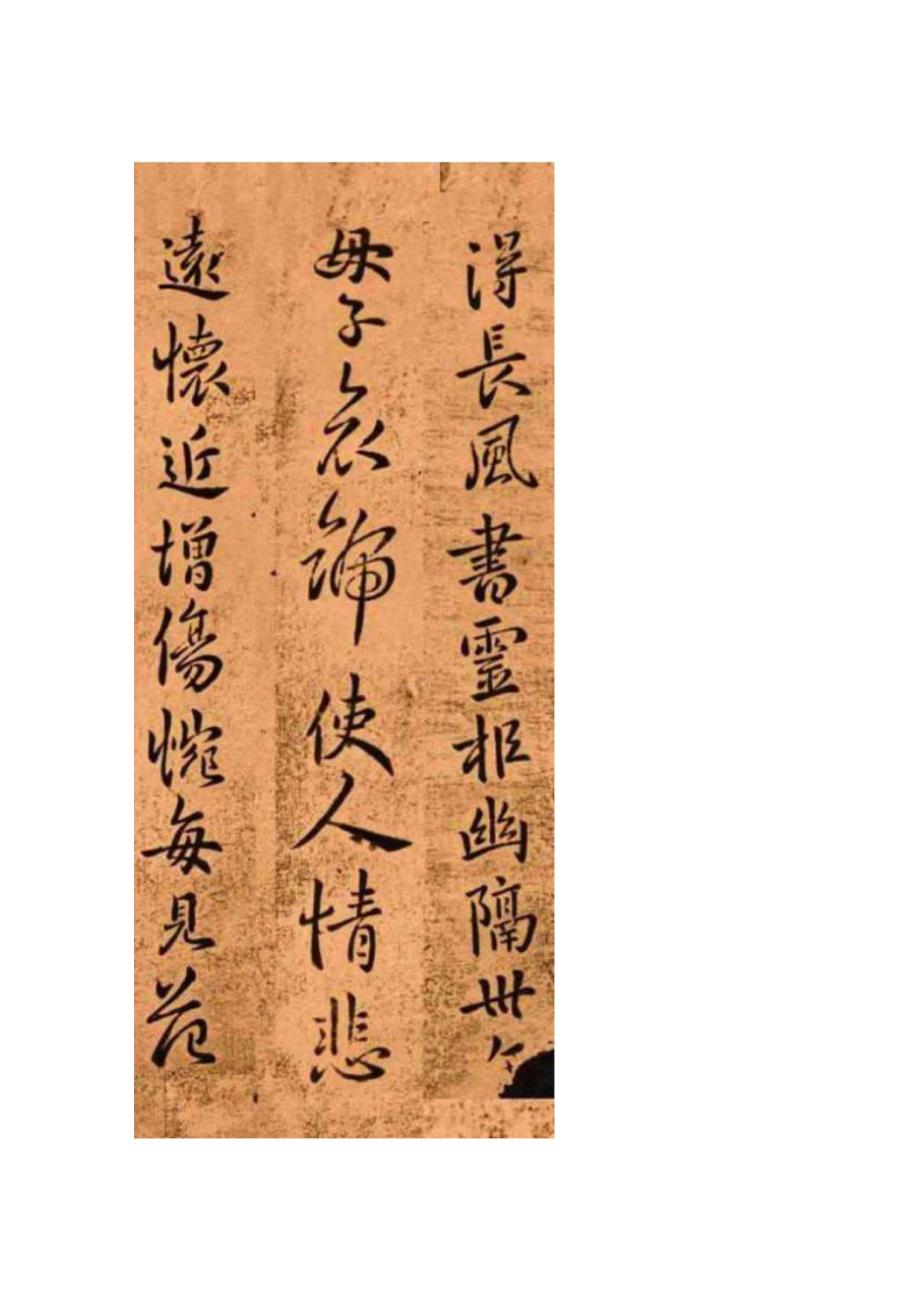 得長風書靈柩幽隔卅
母子使人情悲
遠懷近增傷惋每見